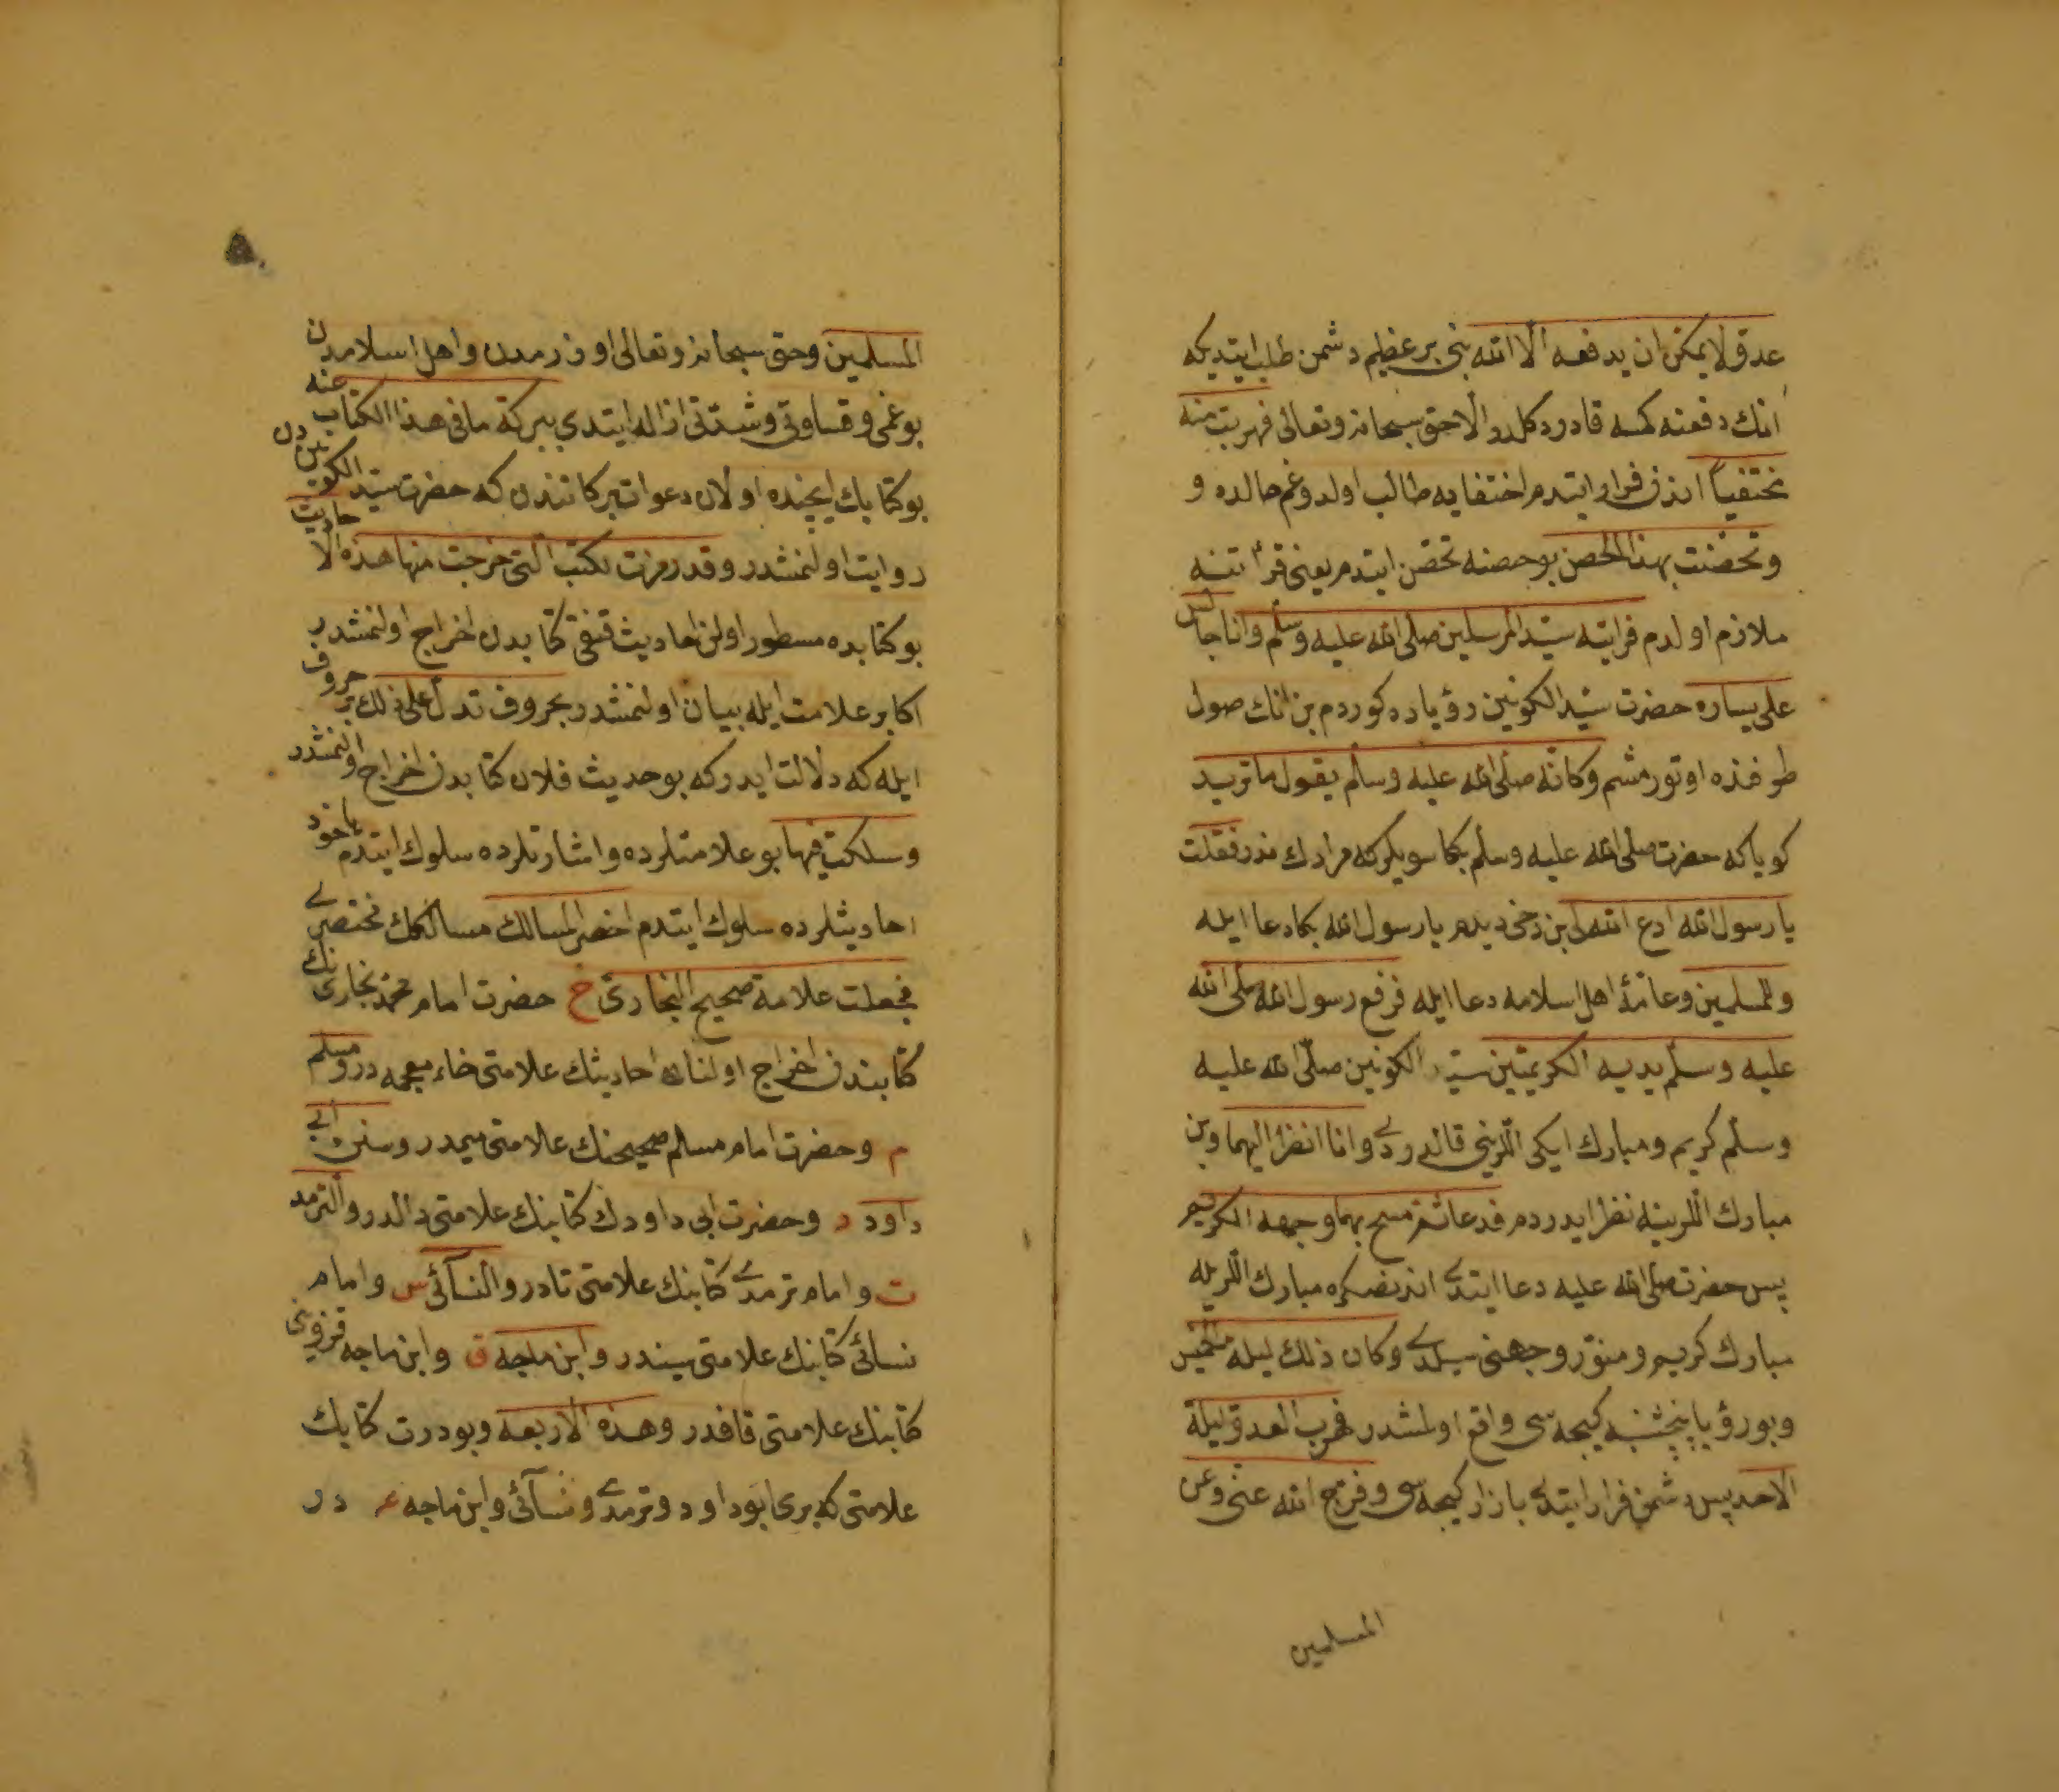 عدوّ لا يمكن ان يدفعه الّا الله بنى بر عظيم دشمن طلب ايتديكه
انك دفعنه كمسه قادر دكلدر الّا حق سبحانه وتعالى فهربت منه
مختفياً اندن فرار ايتدم اختفايه طالب اولدوغم حالده و
وتحصّنت بهذا الحصن بو حصنه تحصّن ايتدم يعنى قرأتنه
ملازم اولدم فرأيته سيّد المرسلين صلى الله عليه وسلم وانا جالس
على يساره حضرت سيّد الكونين رؤياده كوردم بن انك صول
طرفنده اوتورمشم وكانّه صلى الله عليه وسلم يقول ما تريد
كويا كه حضرت صلى الله عليه وسلم بكا سويلركه مرادك ندر فقلت
يا رسول الله ادع الله لى بن دخى ديدم يا رسول الله بكا دعا ايله
وللمسلمين وعامّۀ اهل اسلامه دعا ايله فرفع رسول الله صلى الله
عليه وسلّم يديه الكريمتين سيّد الكونين صلّى الله عليه
وسلّم كريم ومبارك ايكى اللرينى قالدردى وانا انظر اليهما وبن
مبارك اللرينه نظر ايدردم فدعا ثمّ مسح بهما وجهه الكريم
پس حضرت صلى الله عليه دعا ايتدى اندنصكره مبارك اللريله
مبارك كريم ومنوّر وجهنى سيلدى وكان ذلك ليلة الخميس
وبو رؤيا پنچشنبه كيجه سى واقع اولمشدر فهرب العدوّ ليلة
الاحد پس دشمن فرار ايتدى بازار كيجه سى وفرّج الله عنّى وعن
المسلمين
المسلمين وحق سبحانه وتعالى اوزرمدن واهل اسلامدن
بو غمى وقساوتى وشدّتى ازاله ايتدى ببركة ما فى هذا الكتاب عنه
بو كتابك ايچنده اولان دعوات بركاتندن كه حضرت سيّد الكونيندن
روايت اولنمشدر وقد رمزت بكتب الّتى خرجت منها هذه الاحاديث
بو كتابده مسطور اولن احاديث قنغى كتابدن اخراج اولنمشدر
اكا بر علامت ايله بيان اولنمشدر بحروف تدلّ على ذلك بر حروف
ايله كه دلالت ايدركه بو حديث فلان كتابدن اخراج اولنمشدر
وسلكت فيها بو علامتلرده واشارتلرده سلوك ايتدم ياخود
احاديثلرده سلوك ايتدم اخصر المسالك مسالكك مختصرى
فجعلت علامة صحيح البخارى خ حضرت امام محمّد بخارينك
كتابندن اخراج اولنان احاديثك علامتى خاء معجمه در ومسلم
م وحضرت امام مسلم صحيحنك علامتى ميمدر وسنن ابى
داود د وحضرت ابى داودك كتابنك علامتى دالدر والترمذ
ت وامام ترمدى كتابنك علامتى تادر والنسآئى س وامام
نسائى كتابنك علامتى سيندر وابن ماجه ق وابن ماجه قزوينى
كتابنك علامتى قافدر وهذه الاربعه وبو درت كتابك
علامتى كه برى ابو داود وترمدى ونسآئى وابن ماجه عه در